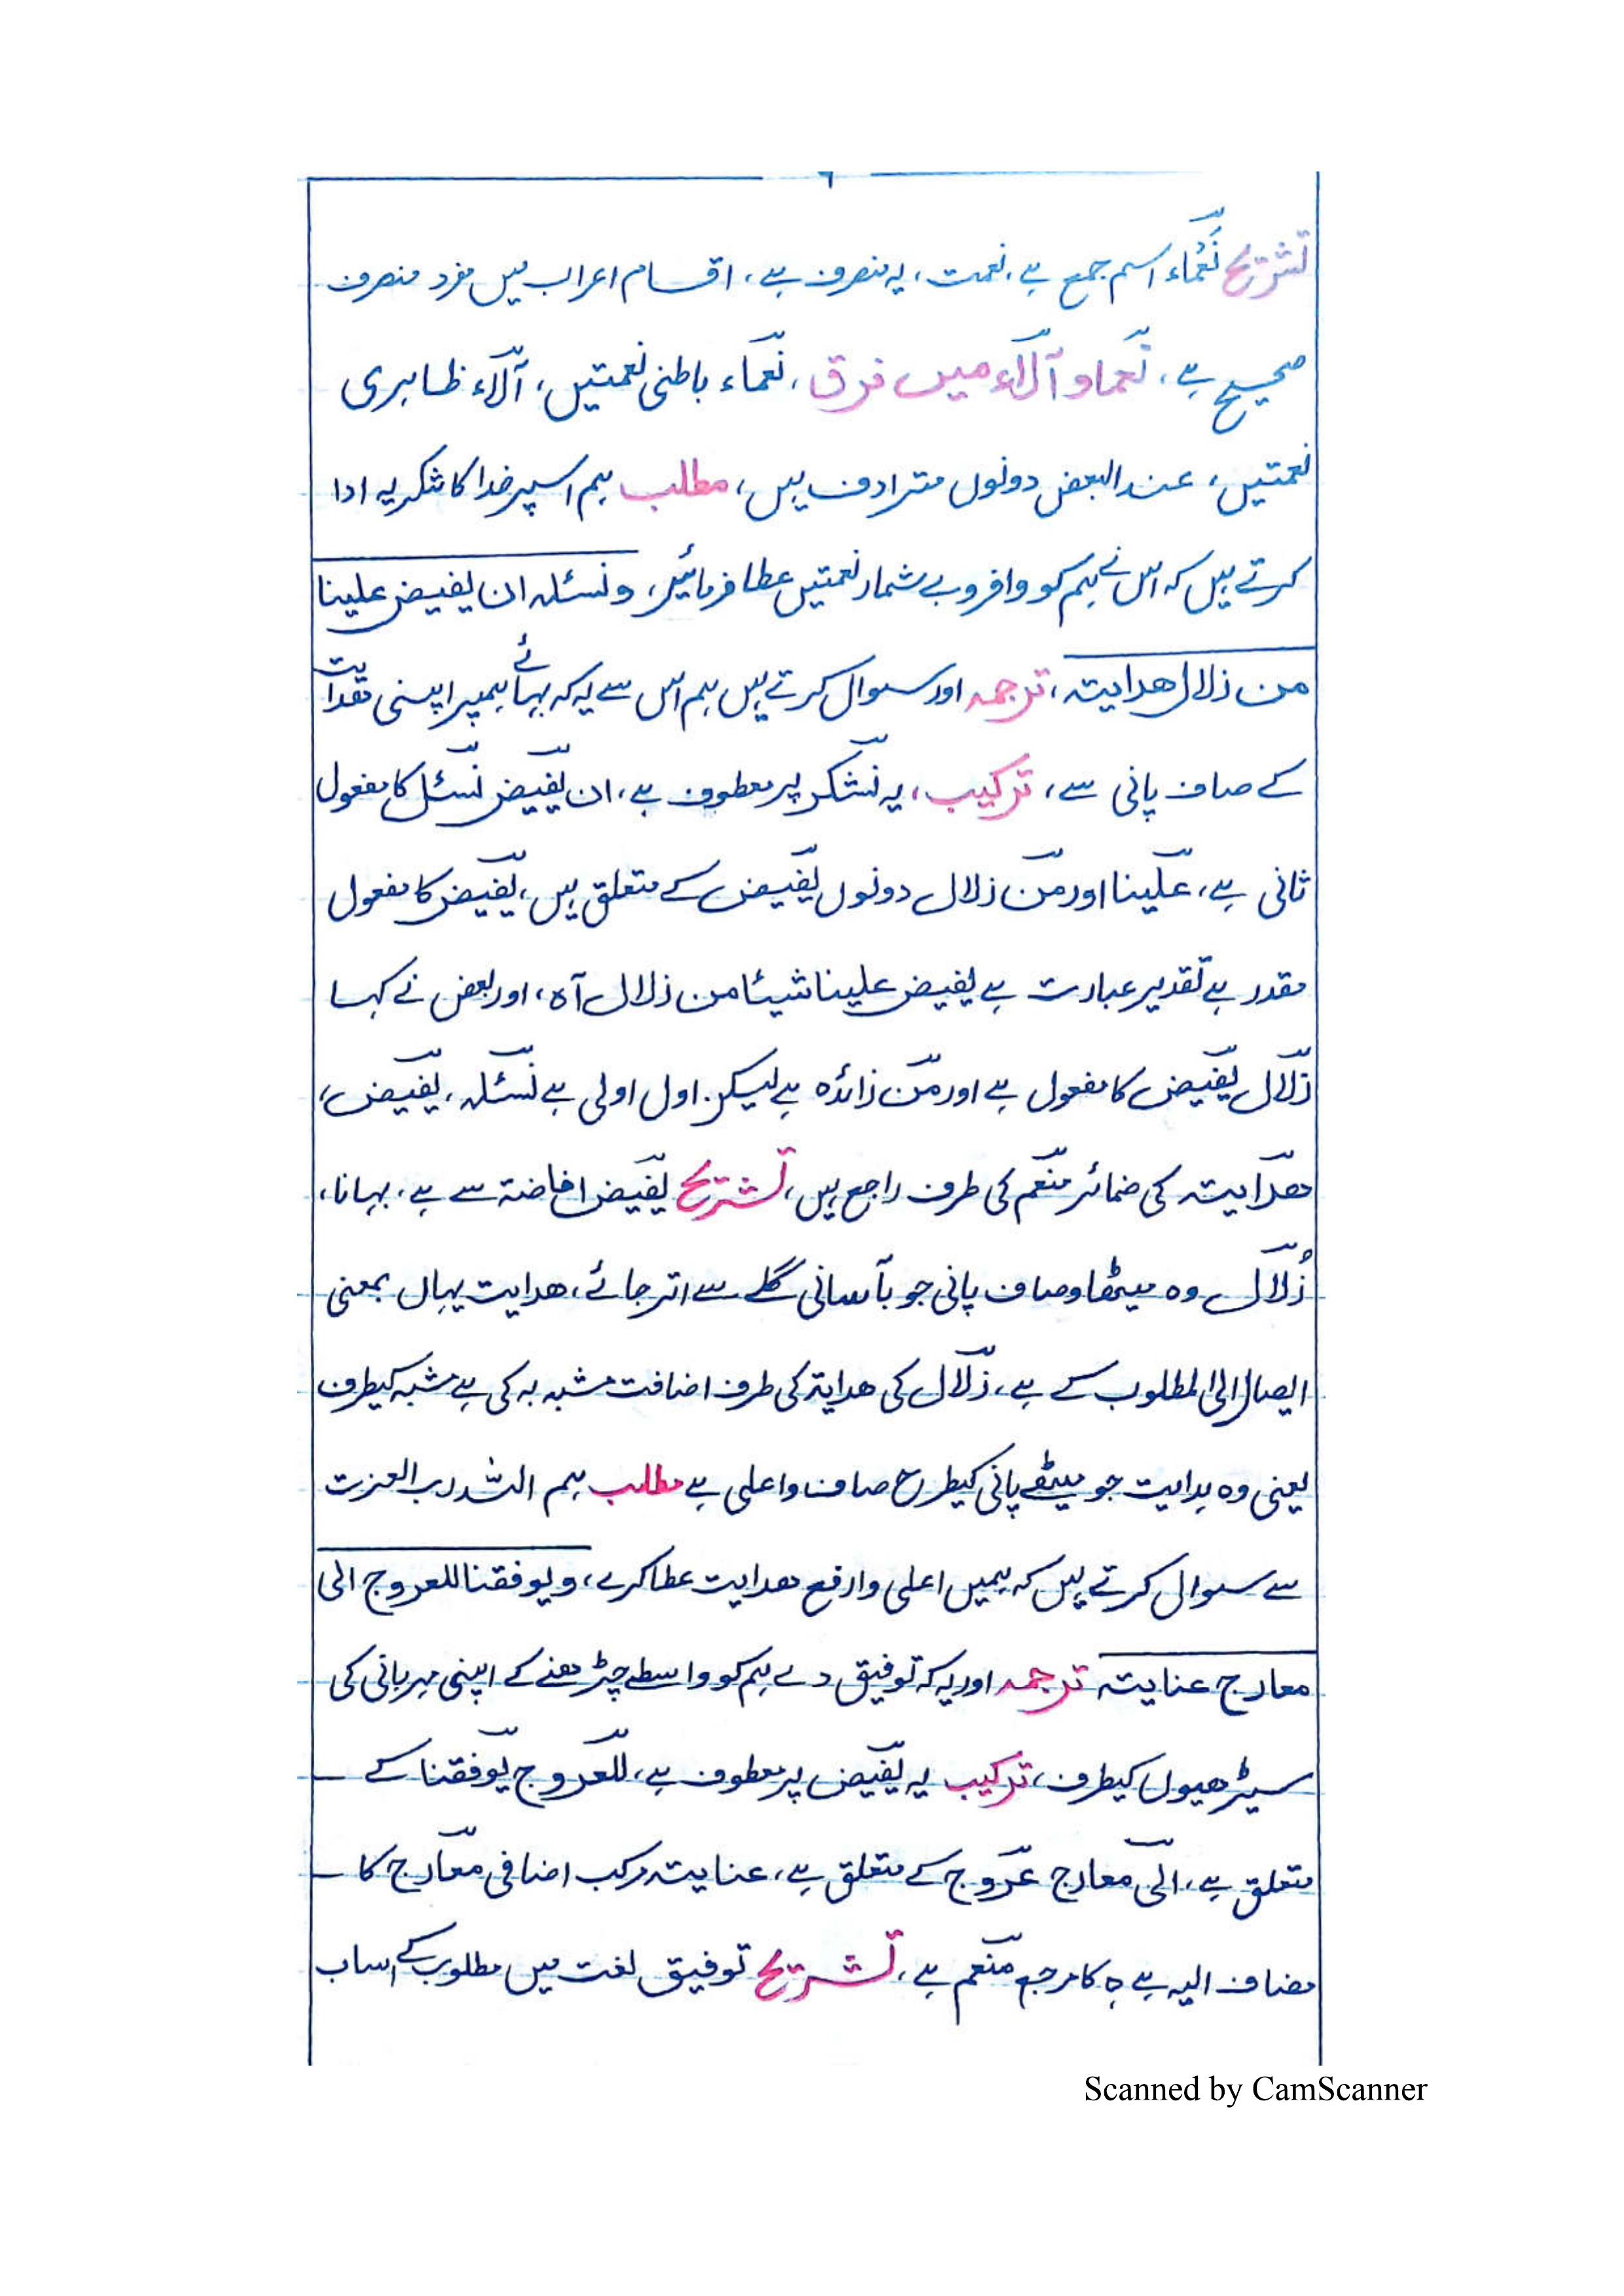 ٦
تشریح نعماء اسم جمع ہے، نعمت، یہ منصرف ہے، اقسام اعراب میں مفرد منصرف
صحیح ہے، نعما و آلاء میں فرق، نعماء باطنی نعمتیں، آلاء ظاہری
نعمتیں، عند البعض دونوں مترادف ہیں، مطلب ہم اسپر خدا کا شکریہ ادا
کرتے ہیں کہ اس نے ہم کو وافر و بے شمار نعمتیں عطا فرمائیں، ونسئلہ ان یفیض علینا
من زلال ھدایتہ، ترجمہ اور سوال کرتے ہیں ہم اس سے یہ کہ بہائے ہمپر اپنی ھدایت
کے صاف پانی سے، ترکیب، یہ نشکر پر معطوف ہے، ان یفیض نسئل کا مفعول
ثانی ہے، علینا اور من زلال دونوں یفیض کے متعلق ہیں، یفیض کا مفعول
مقدر ہے تقدیر عبارت ہے یفیض علینا شیئا من زلال آہ، اور بعض نے کہا
زلال یفیض کا مفعول ہے اور من زائدہ ہے لیکن اول اولی ہے نسئلہ، یفیض،
ھدایتہ کی ضمائر منعم کی طرف راجع ہیں، تشریح یفیض افاضۃ سے ہے، بہانا،
زُلال وہ میٹھا و صاف پانی جو بآسانی گلے سے اتر جائے، ھدایت یہاں بمعنی
ایصال الی المطلوب کے ہے، زلال کی ھدایۃ کی طرف اضافت مشبہ بہ کی ہے مشبہ کیطرف
یعنی وہ ہدایت جو میٹھے پانی کیطرح صاف و اعلی ہے مطلب ہم اللہ رب العزت
سے سوال کرتے ہیں کہ ہمیں اعلی و ارفع ھدایت عطا کرے، ویوفقنا للعروج الی
معارج عنایتہ ترجمہ اور یہ کہ توفیق دے ہم کو واسطے چڑھنے کے اپنی مہربانی کی
سیڑھیوں کیطرف، ترکیب یہ یفیض پر معطوف ہے، للعروج یوفقنا کے
متعلق ہے، الی معارج عروج کے متعلق ہے، عنایتہ مرکب اضافی معارج کا
مضاف الیہ ہے ہ کا مرجع منعم ہے، تشریح توفیق لغت میں مطلوب کے اسباب
Scanned by CamScanner